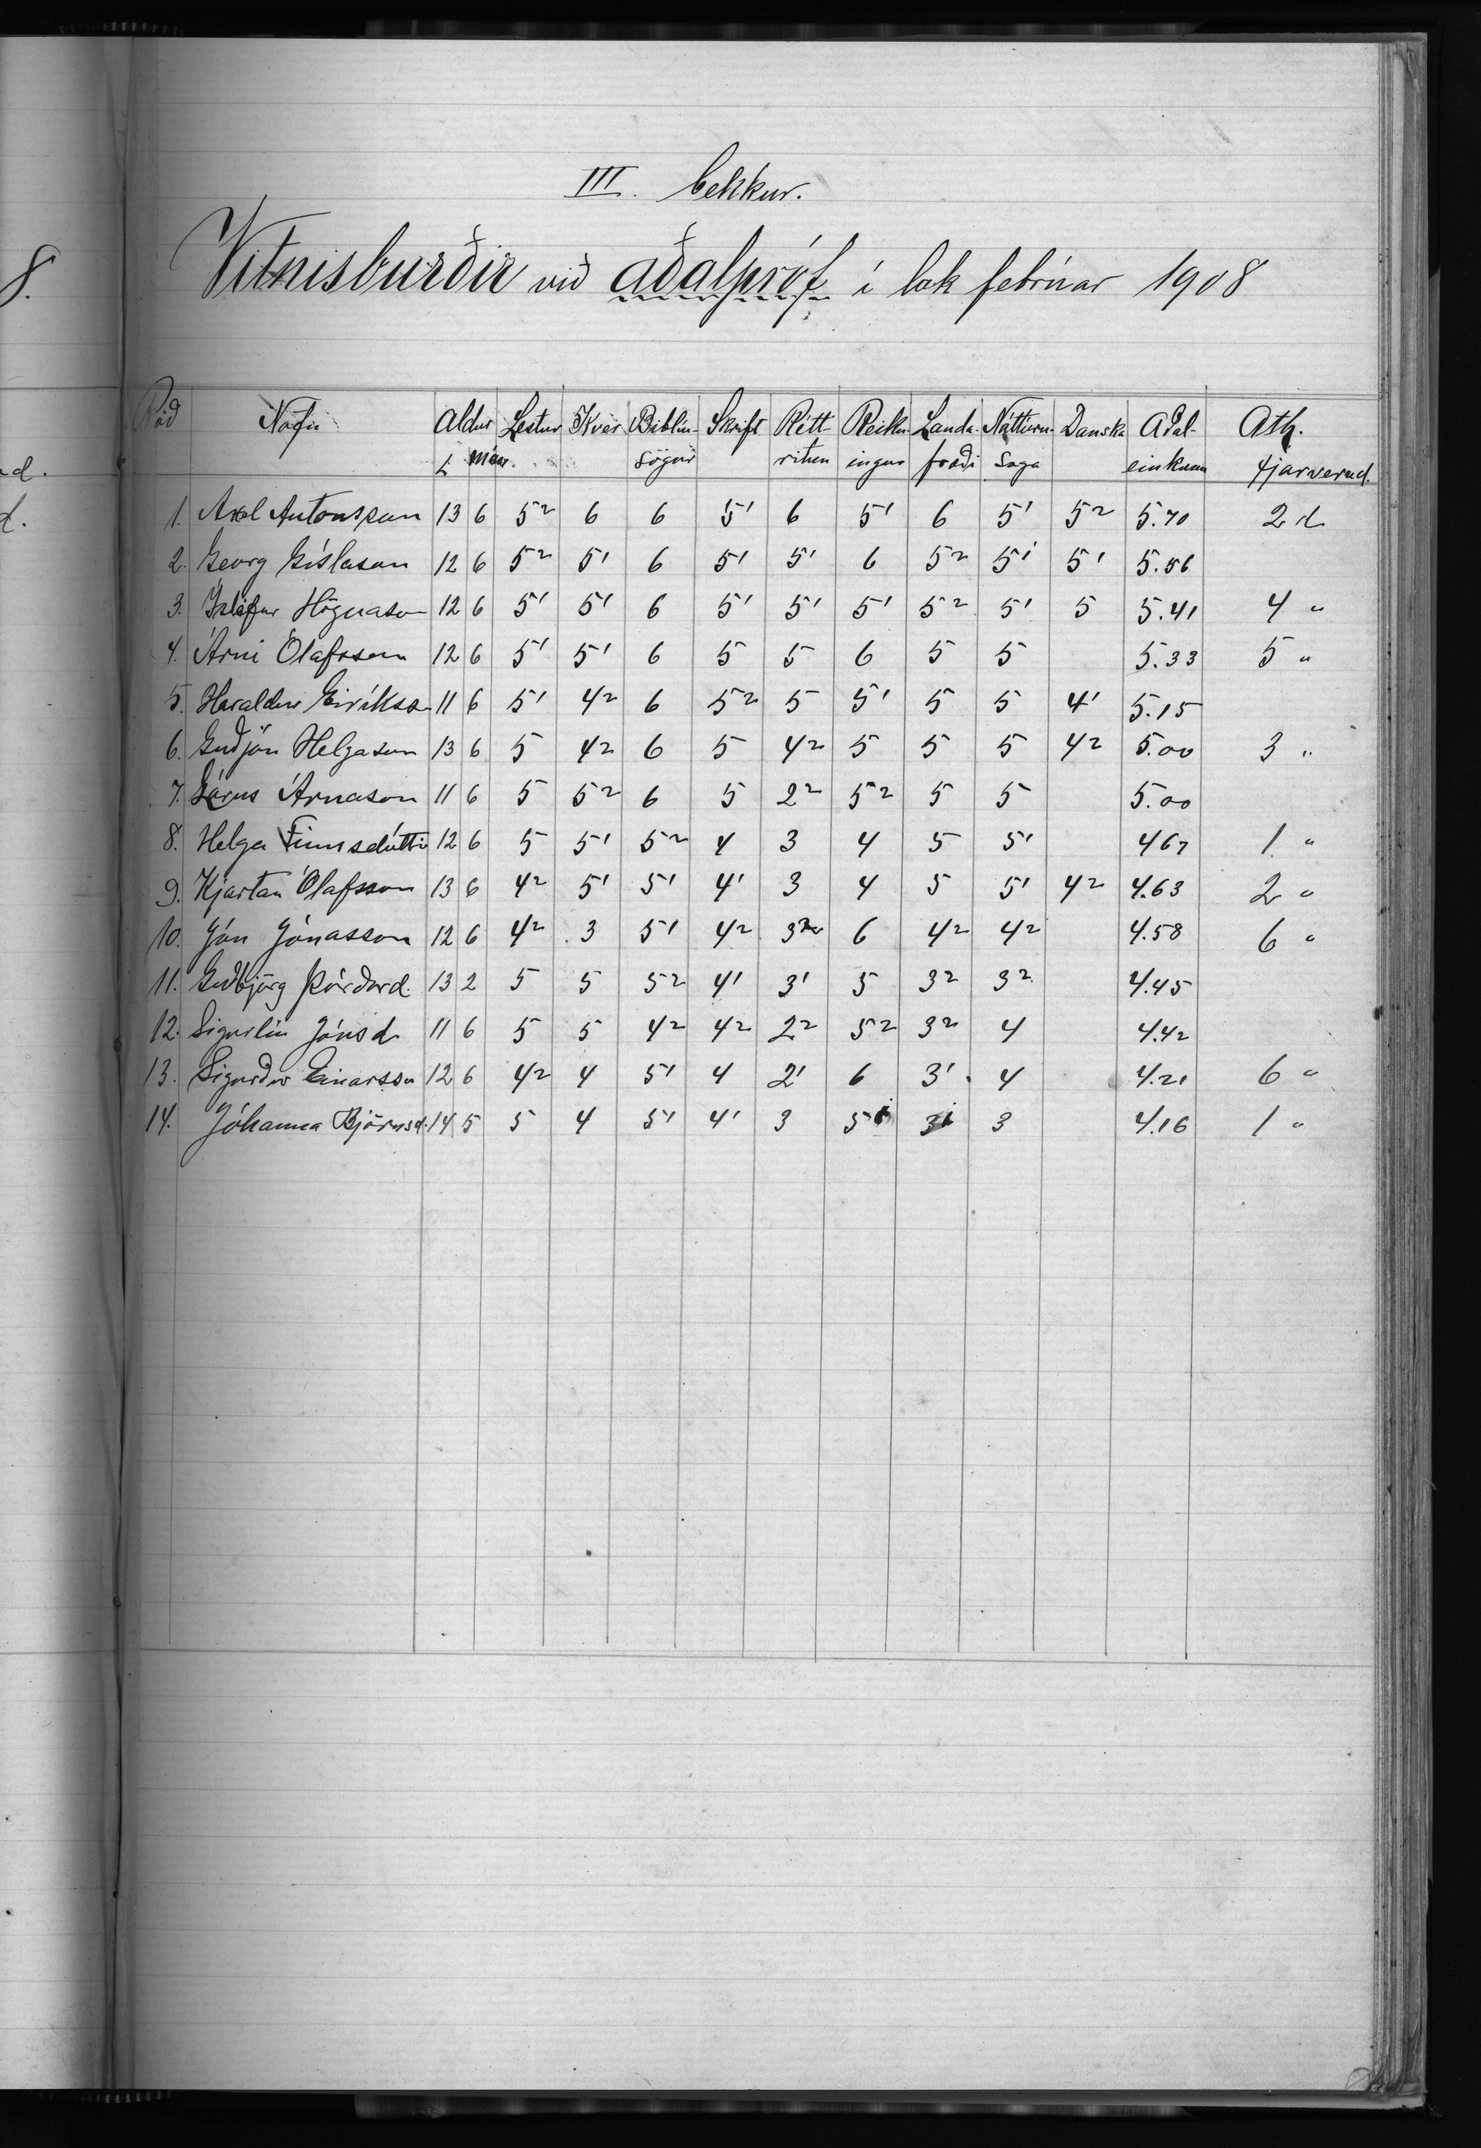 III. bekkur.
Vitnisburðir við aðalpróf í lok febrúar 1908
Röð Nöfn Aldur Lestur Kver Biblíu- Skrift Rétt- Reikn- Landa- Náttúru- Danska Aðal- Ath.
Á mán. sögur ritun ingur fræði saga einkunn fjarverud.
1. Axel Antonsson 13 6 5² 6 6 5¹ 6 5¹ 6 5¹ 5² 5.70 2 d
2. Georg Gíslason 12 6 5² 5¹ 6 5¹ 5¹ 6 5² 5¹ 5¹ 5.56
3. Ísleifur Högnason 12 6 5¹ 5¹ 6 5¹ 5¹ 5¹ 5² 5¹ 5 5.41 4 "
4. Árni Ólafsson 12 6 5¹ 5¹ 6 5 5 6 5 5 5.33 5 "
5. Haraldur Eiríkss. 11 6 5¹ 4² 6 5² 5 5¹ 5 5 4¹ 5.15
6. Guðjón Helgason 13 6 5 4² 6 5 4² 5 5 5 4² 5.00 3 "
7. Lárus Árnason 11 6 5 5² 6 5 2² 5² 5 5 5.00
8. Helga Finnsdóttir 12 6 5 5¹ 5² 4 3 4 5 5¹ 4 67 1 "
9. Kjartan Ólafsson 13 6 4² 5¹ 5¹ 4¹ 3 4 5 5¹ 4² 4.63 2 "
10. Jón Jónasson 12 6 4² 3 5¹ 4² 3² 6 4² 4² 4.58 6 "
11. Guðbjörg Þórðard. 13 2 5 5 5² 4¹ 3¹ 5 3² 3² 4.45
12. Sigurlín Jónsd 11 6 5 5 4² 4² 2² 5² 3² 4 4.42
13. Sigurður Einarsson 12 6 4² 4 5¹ 4 2¹ 6 3¹ 4 4.21 6 "
14. Jóhanna Björnsd. 14 5 5 4 5¹ 4¹ 3 5¹ 3¹ 3 4.16 1 "
8.
d.
d.